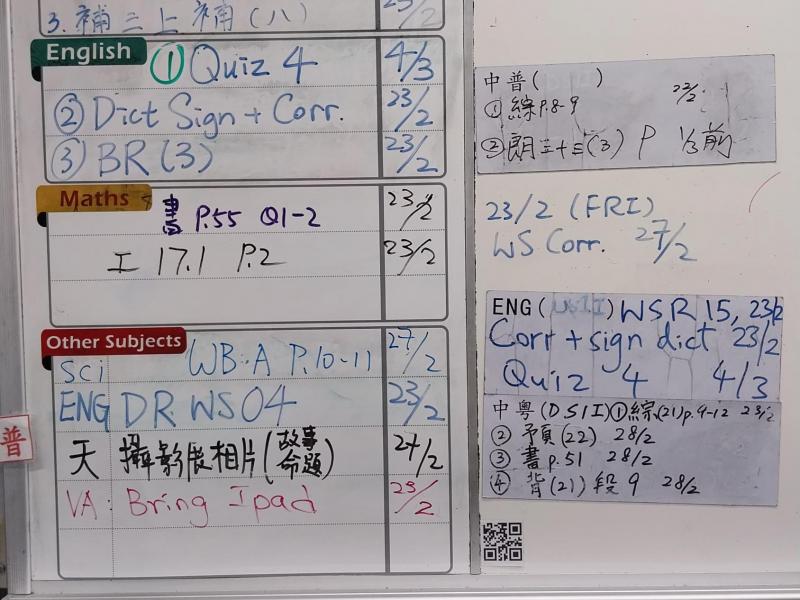 3. 補三上補(八) 23/2
English
① Quiz 4 4/3
② Dict Sign + Corr. 23/2
③ BR (3) 23/2
Maths
書 P.55 Q1-2 23/2
工 17.1 P.2 23/2
Other Subjects
Sci WB:A P.10-11 27/2
ENG DR WS 04 23/2
天 攝影展相片(故事命題) 27/2
VA: Bring Ipad 23/2
普
中普( )
① 綜 P.8-9 23/2
② 朗三十三(3) P 1/3前
23/2 (FRI)
WS Corr. 27/2
ENG ( ) WSR 15, 23/2
Corr + sign dict 23/2
Quiz 4 4/3
中粵(DSII)①綜(21)p.9-12 23/2
② 予頁(22) 28/2
③ 書 p.51 28/2
④ 背(21) 段9 28/2